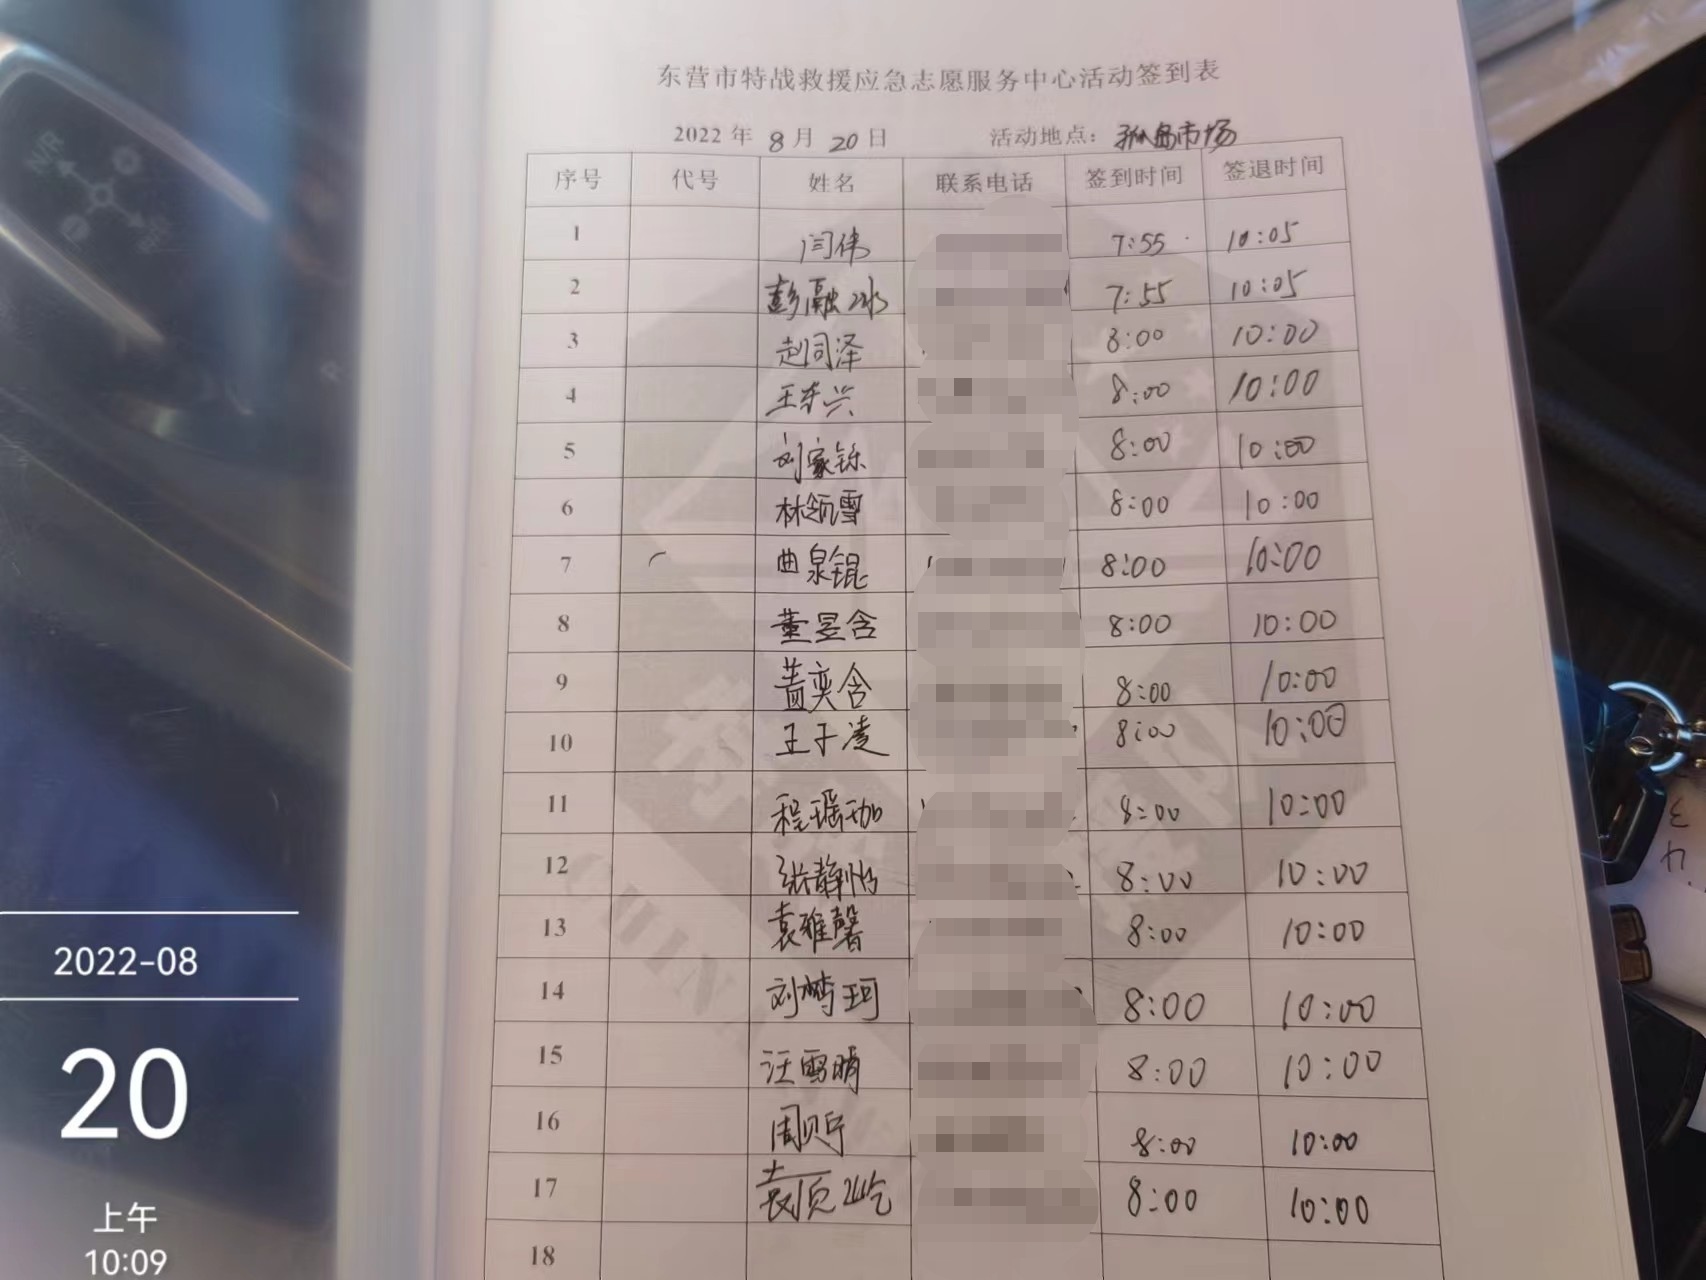 东营市特战救援应急志愿服务中心活动签到表
2022 年 8 月 20 日 活动地点：孤岛市场
序号 代号 姓名 联系电话 签到时间 签退时间
1 闫伟 7:55 10:05
2 彭融冰 7:55 10:05
3 赵同泽 8:00 10:00
4 王东兴 8:00 10:00
5 刘家铄 8:00 10:00
6 林领雪 8:00 10:00
7 曲泉锟 8:00 10:00
8 董昱含 8:00 10:00
9 董奕含 8:00 10:00
10 王子凌 8:00 10:00
11 程瑶珈 8:00 10:00
12 张静怡 8:00 10:00
13 袁雅馨 8:00 10:00
14 8:00 10:00
15 汪雪明 8:00 10:00
16 周贝宁 8:00 10:00
17 8:00 10:00
18
CHINA
2022-08
20
上午
10:09